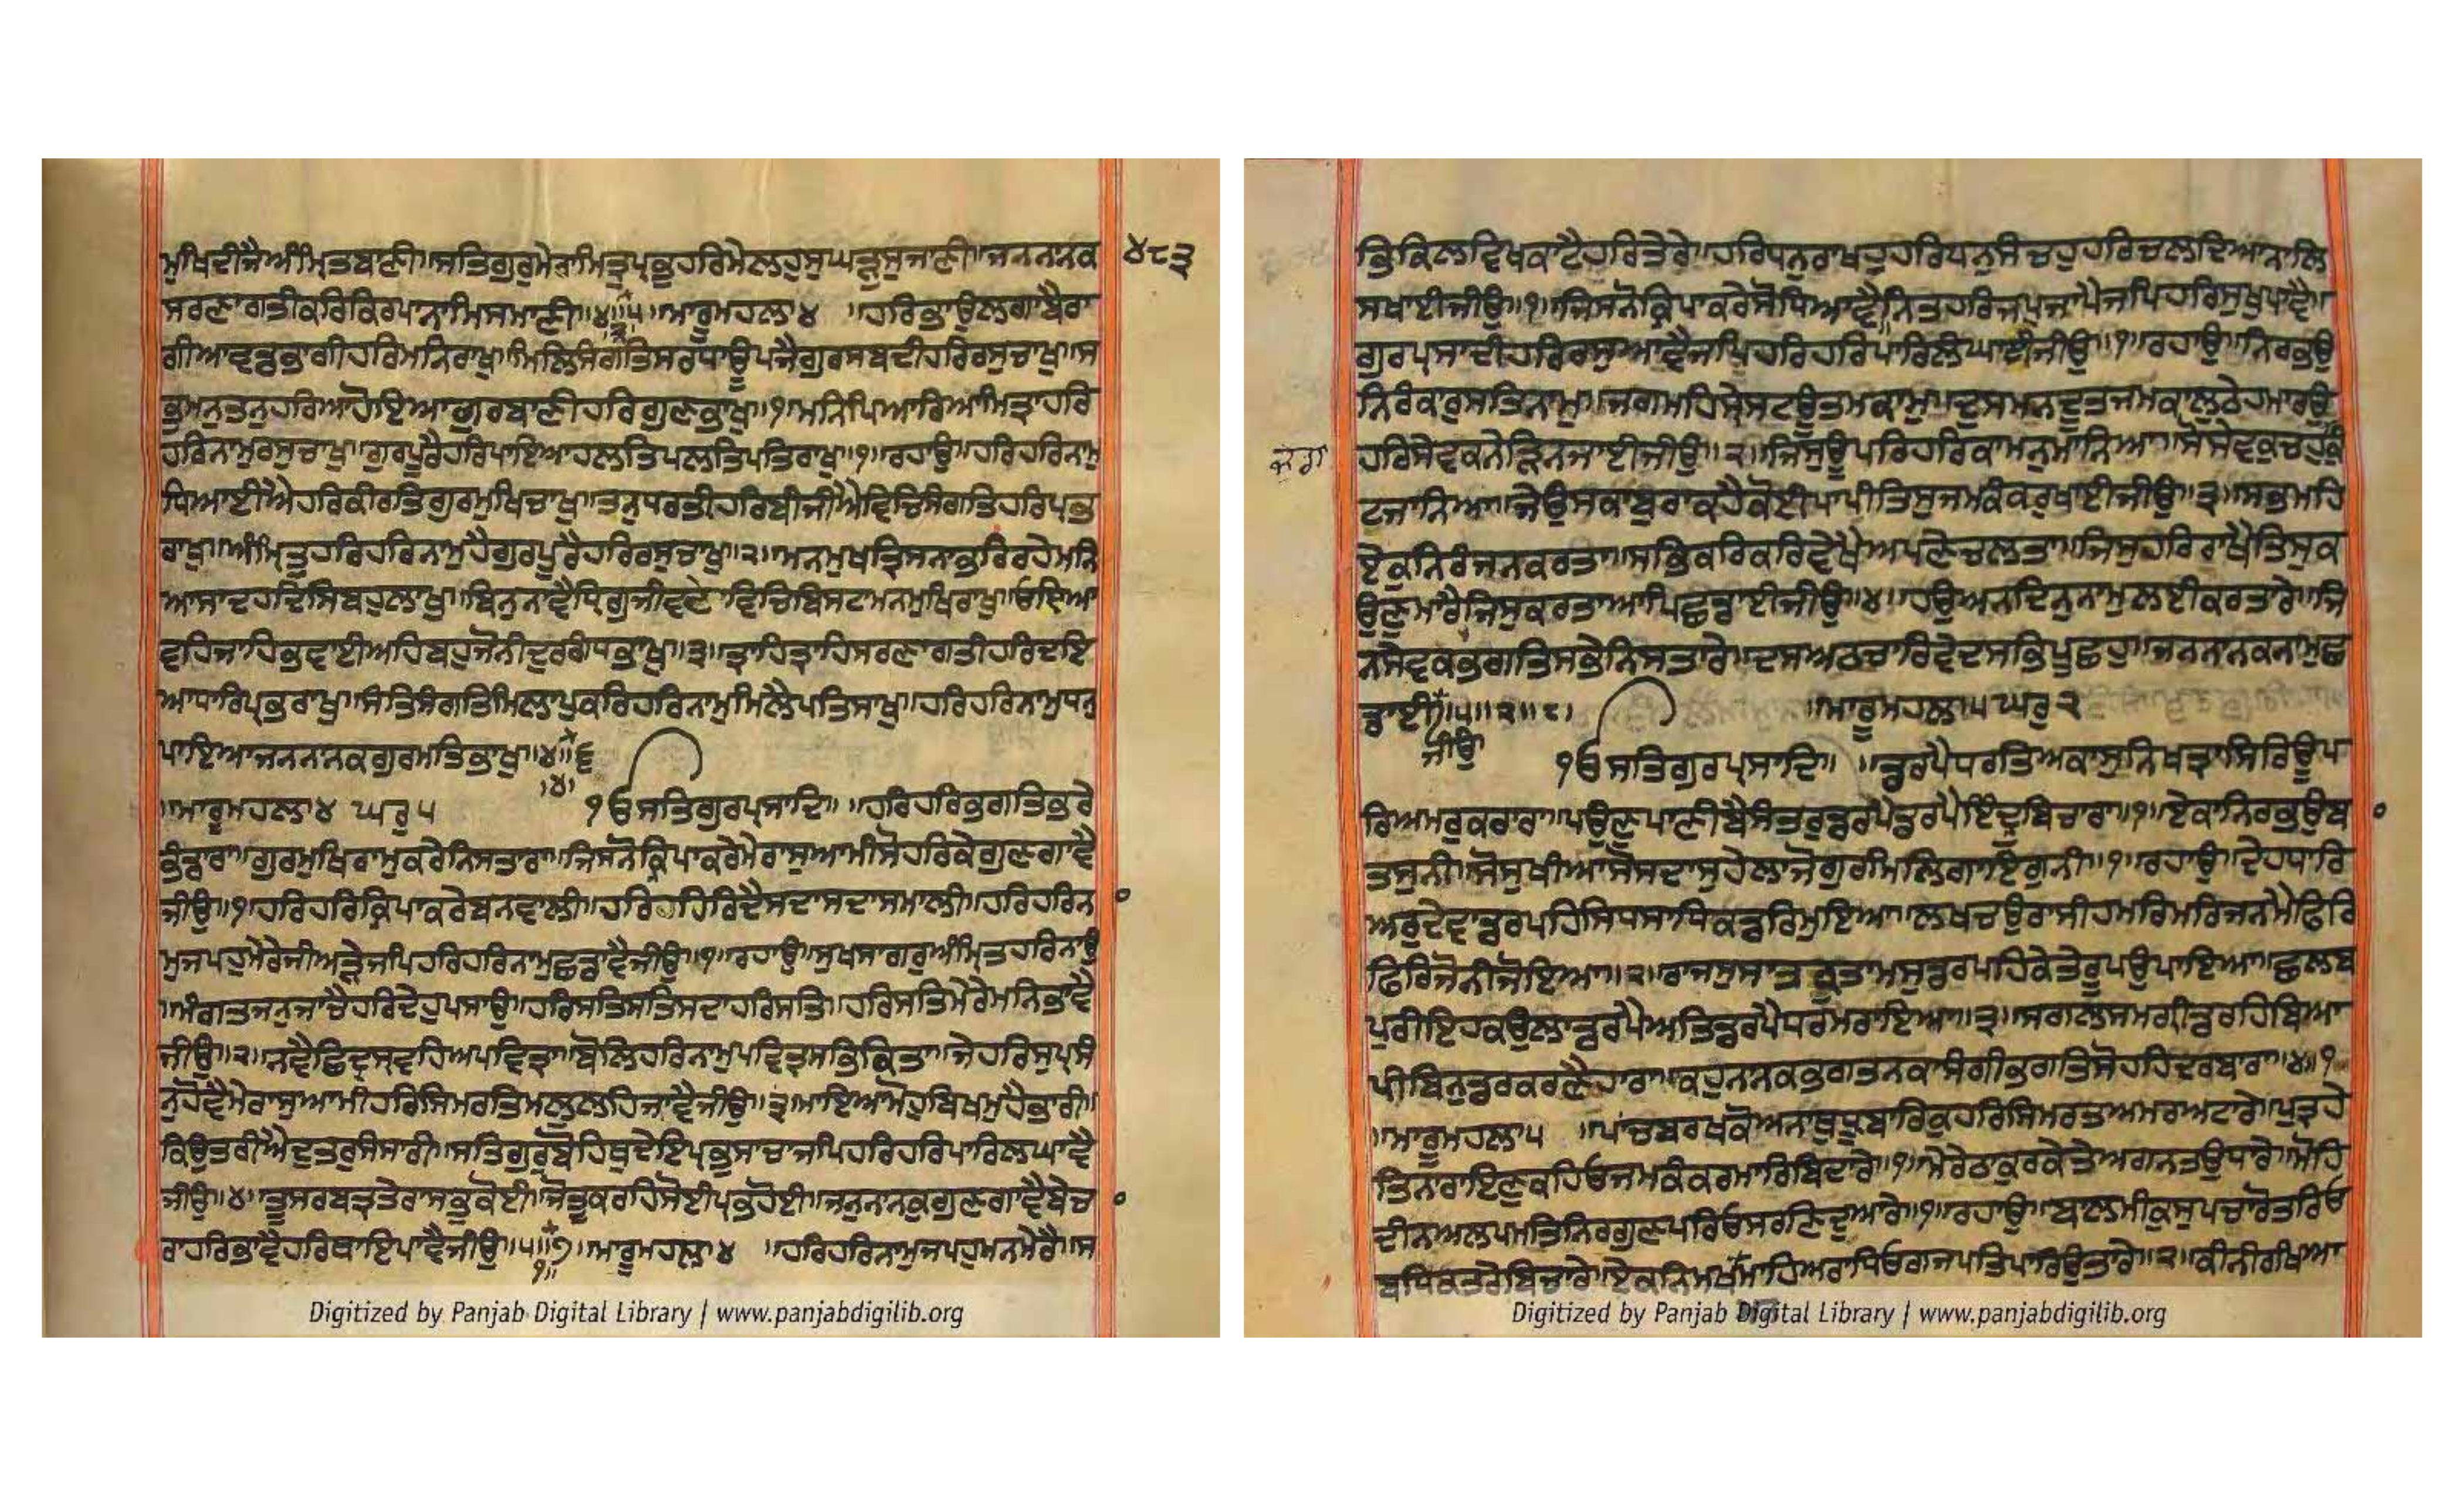 ਮੁਖਿਦੀਜੈਅੰਮ੍ਰਿਤਬਾਣੀ॥ਸਤਿਗੁਰੁਮੇਰਾਮਿਤ੍ਰੁਪ੍ਰਭੁਹਰਿਮੇਲਹੁਸੁਘੜੁਸੁਜਾਣੀ॥ਜਨਨਾਨਕ ੪੮੩
ਸਰਣਾਗਤੀਕਰਿਕਿਰਪਾਨਾਮਿਸਮਾਣੀ॥੪॥੫॥ਮਾਰੂਮਹਲਾ੪ ॥ਹਰਿਭਾਉਲਗਾਬੈਰਾ
ਗੀਆਵਡਭਾਗੀਹਰਿਮਨਿਰਾਖੁ॥ਮਿਲਿਸੰਗਤਿਸਰਧਾਊਪਜੈਗੁਰਸਬਦੀਹਰਿਰਸੁਚਾਖੁ॥ਸ
ਭੁਮਨੁਤਨੁਹਰਿਆਹੋਇਆਗੁਰਬਾਣੀਹਰਿਗੁਣਭਾਖੁ॥੧॥ਮਨਿਪਿਆਰਿਆਮਿਤ੍ਰਾਹਰਿ
ਹਰਿਨਾਮੁਰਸੁਚਾਖੁ॥ਗੁਰਪੂਰੈਹਰਿਪਾਇਆਹਲਤਿਪਲਤਿਪਤਿਰਾਖੁ॥੧॥ਰਹਾਉ॥ਹਰਿਹਰਿਨਾਮੁ
ਧਿਆਈਐਹਰਿਕੀਰਤਿਗੁਰਮੁਖਿਚਾਖੁ॥ਤਨੁਧਰਤੀਹਰਿਬੀਜੀਐਵਿਚਿਸੰਗਤਿਹਰਿਪ੍ਰਭ
ਰਾਖੁ॥ਅੰਮ੍ਰਿਤੁਹਰਿਹਰਿਨਾਮੁਹੈਗੁਰਪੂਰੈਹਰਿਰਸੁਚਾਖੁ॥੨॥ਮਨਮੁਖਤ੍ਰਿਸਨਾਭਰਿਰਹੇਮਨਿ
ਆਸਾਦਹਦਿਸਿਬਹੁਲਾਖੁ॥ਬਿਨੁਨਾਵੈਧ੍ਰਿਗੁਜੀਵਦੇਵਿਚਿਬਿਸਟਾਮਨਮੁਖਿਰਾਖੁ॥ਓਇਆ
ਵਹਿਜਾਹਿਭਵਾਈਅਹਿਬਹੁਜੋਨੀਦੁਰਗੰਧਭਾਖੁ॥੩॥ਤ੍ਰਾਹਿਤ੍ਰਾਹਿਸਰਣਾਗਤੀਹਰਿਦਇ
ਆਧਾਰਿਪ੍ਰਭਰਾਖੁ॥ਸੰਤਿਸੰਗਤਿਮਿਲਾਪੁਕਰਿਹਰਿਨਾਮੁਮਿਲੈਪਤਿਸਾਖੁ॥ਹਰਿਹਰਿਨਾਮੁਧਨੁ
ਪਾਇਆਜਨਨਾਨਕਗੁਰਮਤਿਭਾਖੁ॥੪॥੬
॥ਮਾਰੂਮਹਲਾ੪ ਘਰੁ੫ ੧ਓਸਤਿਗੁਰਪ੍ਰਸਾਦਿ॥ ॥ਹਰਿਹਰਿਭਗਤਿਭਰੇ
ਭੰਡਾਰਾ॥ਗੁਰਮੁਖਿਰਾਮੁਕਰੇਨਿਸਤਾਰਾ॥ਜਿਸਨੋਕ੍ਰਿਪਾਕਰੇਮੇਰਾਸੁਆਮੀਸੋਹਰਿਕੇਗੁਣਗਾਵੈ
ਜੀਉ॥੧॥ਹਰਿਹਰਿਕ੍ਰਿਪਾਕਰੇਬਨਵਾਲੀ॥ਹਰਿਹਰਿਰਿਦੈਸਦਾਸਦਾਸਮਾਲੀ॥ਹਰਿਹਰਿਨਾ
ਮੁਜਪਹੁਮੇਰੇਜੀਅੜੇਜਪਿਹਰਿਹਰਿਨਾਮੁਛਡਾਵੈਜੀਉ॥੧॥ਰਹਾਉ॥ਸੁਖਸਾਗਰੁਅੰਮ੍ਰਿਤਹਰਿਨਾਉ
॥ਮੰਗਤਜਨੁਜਾਚੈਹਰਿਦੇਹੁਪਸਾਉ॥ਹਰਿਸਤਿਸਤਿਸਦਾਹਰਿਸਤਿ॥ਹਰਿਸਤਿਮੇਰੇਮਨਿਭਾਵੈ
ਜੀਉ॥੨॥ਨਵੈਛਿਦ੍ਰਸ੍ਰਵਹਿਅਪਵਿਤ੍ਰਾ॥ਬੋਲਿਹਰਿਨਾਮੁਪਵਿਤ੍ਰਸਭਿਕਿਤਾ॥ਜੇਹਰਿਸੁਪ੍ਰਸੰ
ਨੁਹੋਵੈਮੇਰਾਸੁਆਮੀਹਰਿਸਿਮਰਤਿਮਲੁਲਹਿਜਾਵੈਜੀਉ॥੩॥ਮਾਇਆਮੋਹੁਬਿਖਮੁਹੈਭਾਰੀ॥
ਕਿਉਤਰੀਐਦੁਤਰੁਸੰਸਾਰੀ॥ਸਤਿਗੁਰੁਬੋਹਿਥੁਦੇਇਪ੍ਰਭੁਸਾਚਾਜਪਿਹਰਿਹਰਿਪਾਰਿਲਘਾਵੈ
ਜੀਉ॥੪॥ਤੂਸਰਬਤ੍ਰਤੇਰਾਸਭੁਕੋਈ॥ਜੋਤੂਕਰਹਿਸੋਈਪ੍ਰਭਹੋਈ॥ਜਨੁਨਾਨਕੁਗੁਣਗਾਵੈਬੇਚਾ
ਰਾਹਰਿਭਾਵੈਹਰਿਥਾਇਪਾਵੈਜੀਉ॥੫॥੭॥ਮਾਰੂਮਹਲਾ੪ ॥ਹਰਿਹਰਿਨਾਮੁਜਪਹੁਮਨਮੇਰੈ॥ਸ
੧॥
Digitized by Panjab Digital Library | www.panjabdigilib.org
ਭਿਕਿਲਵਿਖਕਾਟੈਹਰਿਤੇਰੇ॥ਹਰਿਧਨੁਰਾਖਹੁਹਰਿਧਨੁਸੰਚਹੁਹਰਿਚਲਦਿਆਨਾਲਿ
ਸਖਾਈਜੀਉ॥੧॥ਜਿਸਨੋਕ੍ਰਿਪਾਕਰੇਸੋਧਿਆਵੈ॥ਨਿਤਹਰਿਜਪੁਜਾਪੈਜਪਿਹਰਿਸੁਖੁਪਾਵੈ॥
ਗੁਰਪ੍ਰਸਾਦੀਹਰਿਰਸੁਆਵੈਜਪਿਹਰਿਹਰਿਪਾਰਿਲੰਘਾਈਜੀਉ॥੧॥ਰਹਾਉ॥ਨਿਰਭਉ
ਨਿਰੰਕਾਰੁਸਤਿਨਾਮੁ॥ਜਗਮਹਿਸ੍ਰੇਸਟੁਊਤਮਕਾਮੁ॥ਦੁਸਮਨਦੂਤਜਮਕਾਲੁਠੇਹਮਾਰਉ
ਹਰਿਸੇਵਕਨੇੜਿਨਜਾਈਜੀਉ॥੨॥ਜਿਸੁਊਪਰਿਹਰਿਕਾਮਨੁਮਾਨਿਆ॥ਸੋਸੇਵਕੁਚਹੁਕੁੰ
ਟਜਾਨਿਆ॥ਜੇਉਸਕਾਬੁਰਾਕਹੈਕੋਈਪਾਪੀਤਿਸੁਜਮਕੰਕਰੁਖਾਈਜੀਉ॥੩॥ਸਭਮਹਿ
ਏਕੁਨਿਰੰਜਨਕਰਤਾ॥ਸਭਿਕਰਿਕਰਿਵੇਖੈਅਪਣੇਚਲਤਾ॥ਜਿਸੁਹਰਿਰਾਖੈਤਿਸੁਕ
ਉਣੁਮਾਰੈਜਿਸੁਕਰਤਾਆਪਿਛਡਾਈਜੀਉ॥੪॥ਹਉਅਨਦਿਨੁਨਾਮੁਲਈਕਰਤਾਰੇ॥ਜਿ
ਨਸੇਵਕਭਗਤਿਸਭੇਨਿਸਤਾਰੇ॥ਦਸਅਠਚਾਰਿਵੇਦਸਭਿਪੂਛਹੁ॥ਜਨਨਾਨਕਨਾਮੁਛ
ਡਾਈ॥੫॥੨॥੮। ॥ਮਾਰੂਮਹਲਾ੫ਘਰੁ੨
ਜੀਉ ੧ਓਸਤਿਗੁਰਪ੍ਰਸਾਦਿ॥ ॥ਡਰਪੈਧਰਤਿਅਕਾਸੁਨਿਖਤ੍ਰਾਸਿਰਿਊਪ
ਰਿਅਮਰੁਕਰਾਰਾ॥ਪਉਣੁਪਾਣੀਬੈਸੰਤਰੁਡਰਪੈਡਰਪੈਇੰਦ੍ਰੁਬਿਚਾਰਾ॥੧॥ਏਕਾਨਿਰਭਉਬਾ
ਤਸੁਨੀ॥ਸੋਸੁਖੀਆਸੋਸਦਾਸੁਹੇਲਾਜੋਗੁਰਮਿਲਿਗਾਇਗੁਨੀ॥੧॥ਰਹਾਉ॥ਦੇਹਧਾਰਿ
ਅਰੁਦੇਵਾਡਰਪਹਿਸਿਧਸਾਧਿਕਡਰਿਮੁਇਆ॥ਲਖਚਉਰਾਸੀਹਮਰਿਮਰਿਜਨਮੈਫਿਰਿ
ਫਿਰਿਜੋਨੀਜੋਇਆ॥੨॥ਰਾਜਸੁਸਾਤਕੁਤਾਮਸੁਡਰਪਹਿਕੇਤੇਰੂਪਉਪਾਇਆ॥ਛਲਬ
ਪੁਰੀਇਹਕਉਲਾਡਰਪੈਅਤਿਡਰਪੈਧਰਮਰਾਇਆ॥੩॥ਸਗਲਸਮਗ੍ਰੀਡਰਹਿਬਿਆ
ਪੀਬਿਨੁਡਰਕਰਣੈਹਾਰਾ॥ਕਹੁਨਾਨਕਭਗਤਨਕਾਸੰਗੀਭਗਤਿਸੋਹਹਿਦਰਬਾਰਾ॥੪॥੧
॥ਮਾਰੂਮਹਲਾ੫ ॥ਪਾਂਚਬਰਖਕੋਅਨਾਥੁਧ੍ਰੂਬਾਰਿਕੁਹਰਿਸਿਮਰਤਅਮਰਅਟਾਰੇ॥ਪੁਤ੍ਰਹੇ
ਤਿਨਾਰਾਇਣੁਕਹਿਓਜਮਕੰਕਰਮਾਰਿਬਿਦਾਰੇ॥੧॥ਮੇਰੇਠਾਕੁਰਕੇਤੇਅਗਨਤਉਧਾਰੇ॥ਮੋਹਿ
ਦੀਨਅਲਪਮਤਿਨਿਰਗੁਣਪਰਿਓਸਰਣਿਦੁਆਰੇ॥੧॥ਰਹਾਉ॥ਬਾਲਮੀਕੁਸੁਪਚਾਰੋਤਰਿਓ
ਬਧਿਕਤਰੇਬਿਚਾਰੇ॥ਏਕਨਿਮਖਮਾਹਿਅਰਾਧਿਓਗਜਪਤਿਪਾਰਿਉਤਾਰੇ॥੨॥ਕੀਨੀਰਖਿਆ
Digitized by Panjab Digital Library | www.panjabdigilib.org